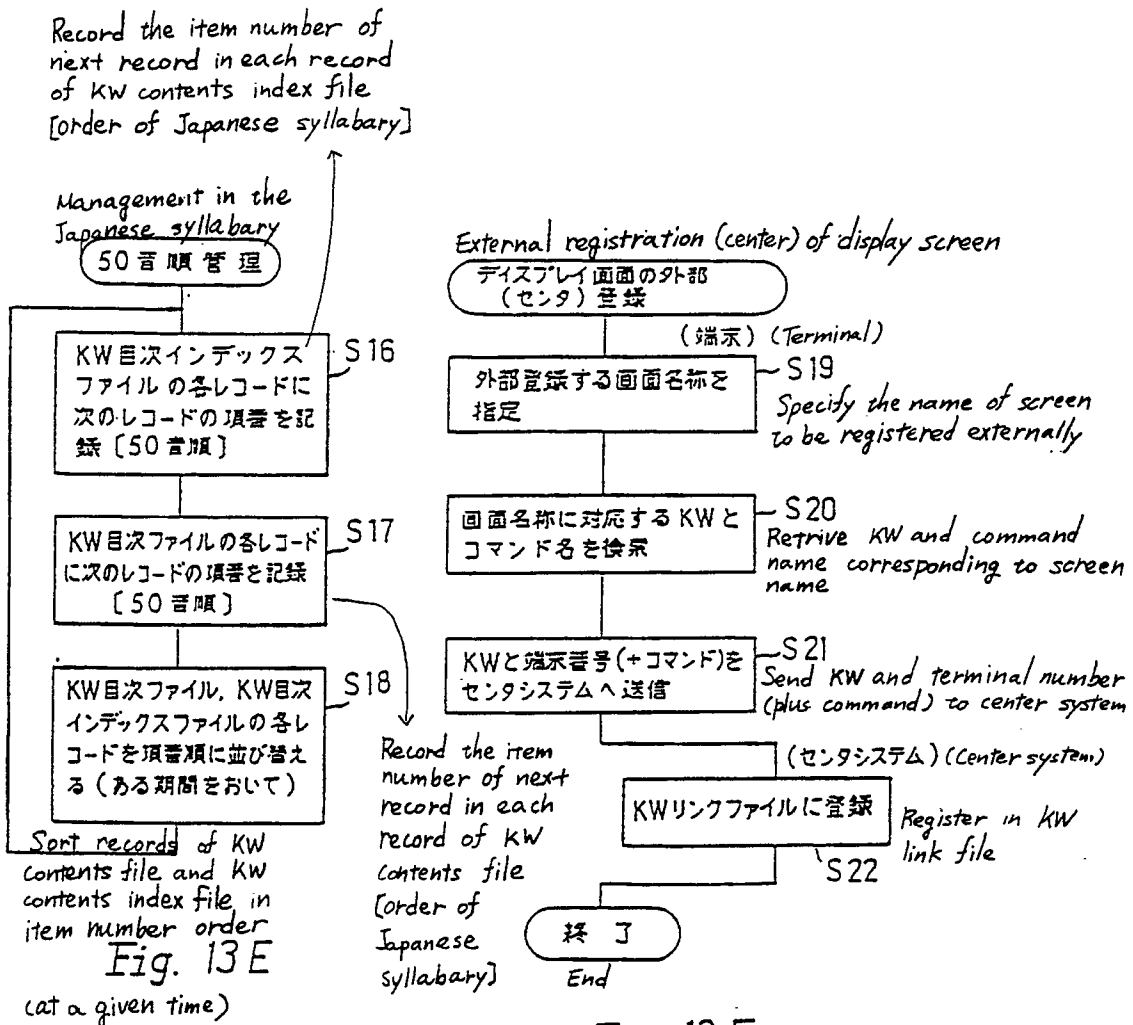 Record the item number of
next record in each record
of KW contents index file
[order of Japanese syllabary]
Management in the
Japanese syllabary
50音順管理
KW目次インデックス
ファイルの各レコードに
次のレコードの項番を記
録〔50音順〕
S16
KW目次ファイルの各レコード
に次のレコードの項番を記録
〔50音順〕
S17
KW目次ファイル,KW目次
インデックスファイルの各レ
コードを項番順に並び替え
る(ある期間をおいて)
S18
Sort records of KW
contents file and KW
contents index file in
item number order
Fig. 13E
(at a given time)
Record the item
number of next
record in each
record of KW
contents file
[order of
Japanese
syllabary]
External registration (center) of display screen
ディスプレイ画面の外部
(センタ)登録
(端末) (Terminal)
外部登録する画面名称を
指定
S19
Specify the name of screen
to be registered externally
画面名称に対応するKWと
コマンド名を検索
S20
Retrive KW and command
name corresponding to screen
name
KWと端末番号(+コマンド)を
センタシステムへ送信
S21
Send KW and terminal number
(plus command) to center system
(センタシステム) (Center system)
KWリンクファイルに登録
Register in KW
link file
S22
終了
End